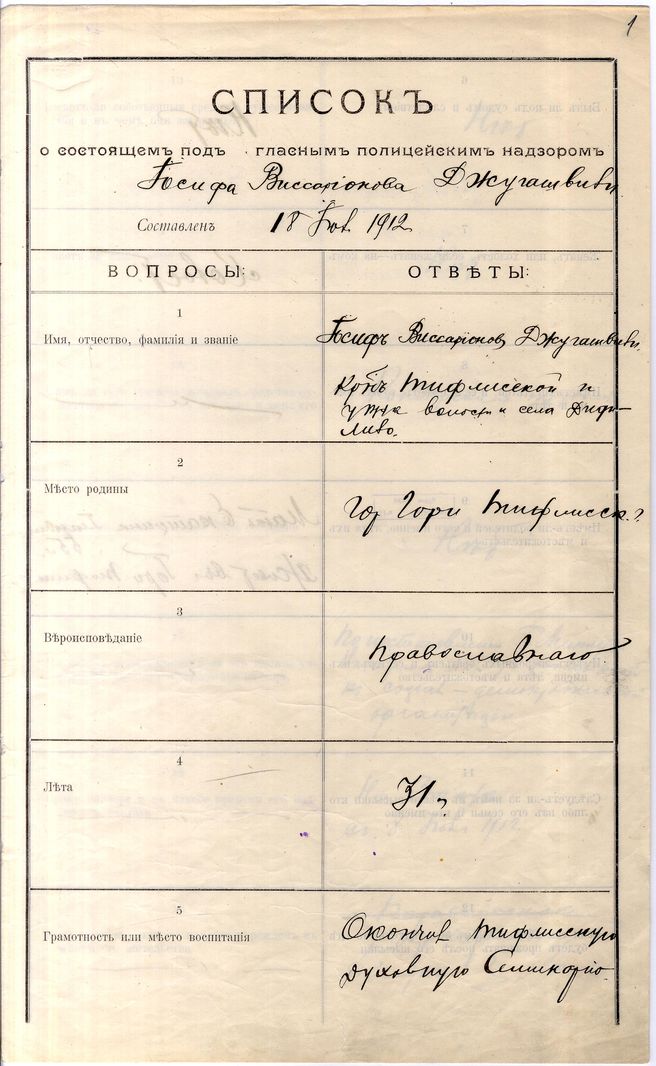 1
СПИСОКЪ
о состоящемъ подъ гласнымъ полицейскимъ надзоромъ
Іосифа Виссаріонова Джугашвили
Составленъ 18 1912
ВОПРОСЫ: ОТВѢТЫ:
1
Имя, отчество, фамилія и званіе
Іосифъ Виссаріоновъ Джугашвили.
Тифлисской
волости и села
Лило.
2
Мѣсто родины
Гор Гори Тифлисск. г.
3
Вѣроисповѣданіе
Православнаго
4
Лѣта
31 г.
5
Грамотность или мѣсто воспитанія
Окончив Тифлисскую
духовную Семинарію